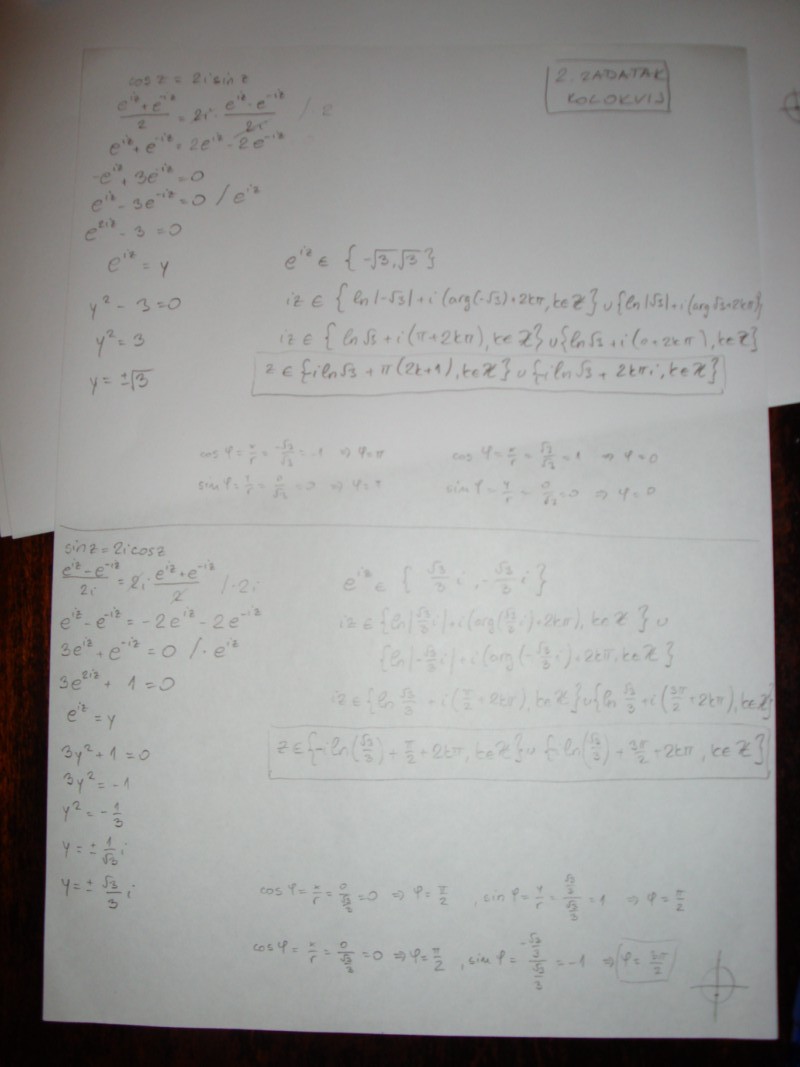 cos z = 2i sin z
2. ZADATAK
KOLOKVIJ
(e^{iz} + e^{-iz})/2 = 2i · (e^{iz} - e^{-iz})/2i / 2
e^{iz} + e^{-iz} = 2e^{iz} - 2e^{-iz}
-e^{iz} + 3e^{-iz} = 0
e^{iz} - 3e^{-iz} = 0 / e^{iz}
e^{2iz} - 3 = 0
e^{iz} = y
y² - 3 = 0
y² = 3
y = ±√3
e^{iz} ∈ {-√3, √3}
iz ∈ {ln|-√3| + i(arg(-√3) + 2kπ, k∈Z} ∪ {ln|√3| + i(arg√3+2kπ)}
iz ∈ {ln√3 + i(π + 2kπ), k∈Z} ∪ {ln√3 + i(0 + 2kπ), k∈Z}
z ∈ {-iln√3 + π(2k+1), k∈Z} ∪ {-iln√3 + 2kπi, k∈Z}
cos φ = x/r = -√3/√3 = -1 ⇒ φ = π
sin φ = y/r = 0/√3 = 0 ⇒ φ =
cos φ = x/r = √3/√3 = 1 ⇒ φ = 0
sin φ = y/r = 0/√3 = 0 ⇒ φ = 0
sin z = 2i cos z
(e^{iz} - e^{-iz})/2i = 2i · (e^{iz} + e^{-iz})/2 / · 2i
e^{iz} - e^{-iz} = -2e^{iz} - 2e^{-iz}
3e^{iz} + e^{-iz} = 0 / · e^{iz}
3e^{2iz} + 1 = 0
e^{iz} = y
3y² + 1 = 0
3y² = -1
y² = -1/3
y = ± 1/√3 i
y = ± √3/3 i
e^{iz} ∈ {√3/3 i, -√3/3 i}
iz ∈ {ln|√3/3 i| + i(arg(√3/3 i) + 2kπ), k∈Z} ∪
{ln|-√3/3 i| + i(arg(-√3/3 i) + 2kπ, k∈Z}
iz ∈ {ln √3/3 + i(π/2 + 2kπ), k∈Z} ∪ {ln √3/3 + i(3π/2 + 2kπ), k∈Z}
z ∈ {-iln(√3/3) + π/2 + 2kπ, k∈Z} ∪ {-iln(√3/3) + 3π/2 + 2kπ, k∈Z}
cos φ = x/r = 0/(√3/3) = 0 ⇒ φ = π/2 , sin φ = y/r = (√3/3)/(√3/3) = 1 ⇒ φ = π/2
cos φ = x/r = 0/(√3/3) = 0 ⇒ φ = π/2 , sin φ = (-√3/3)/(√3/3) = -1 ⇒ φ = 3π/2